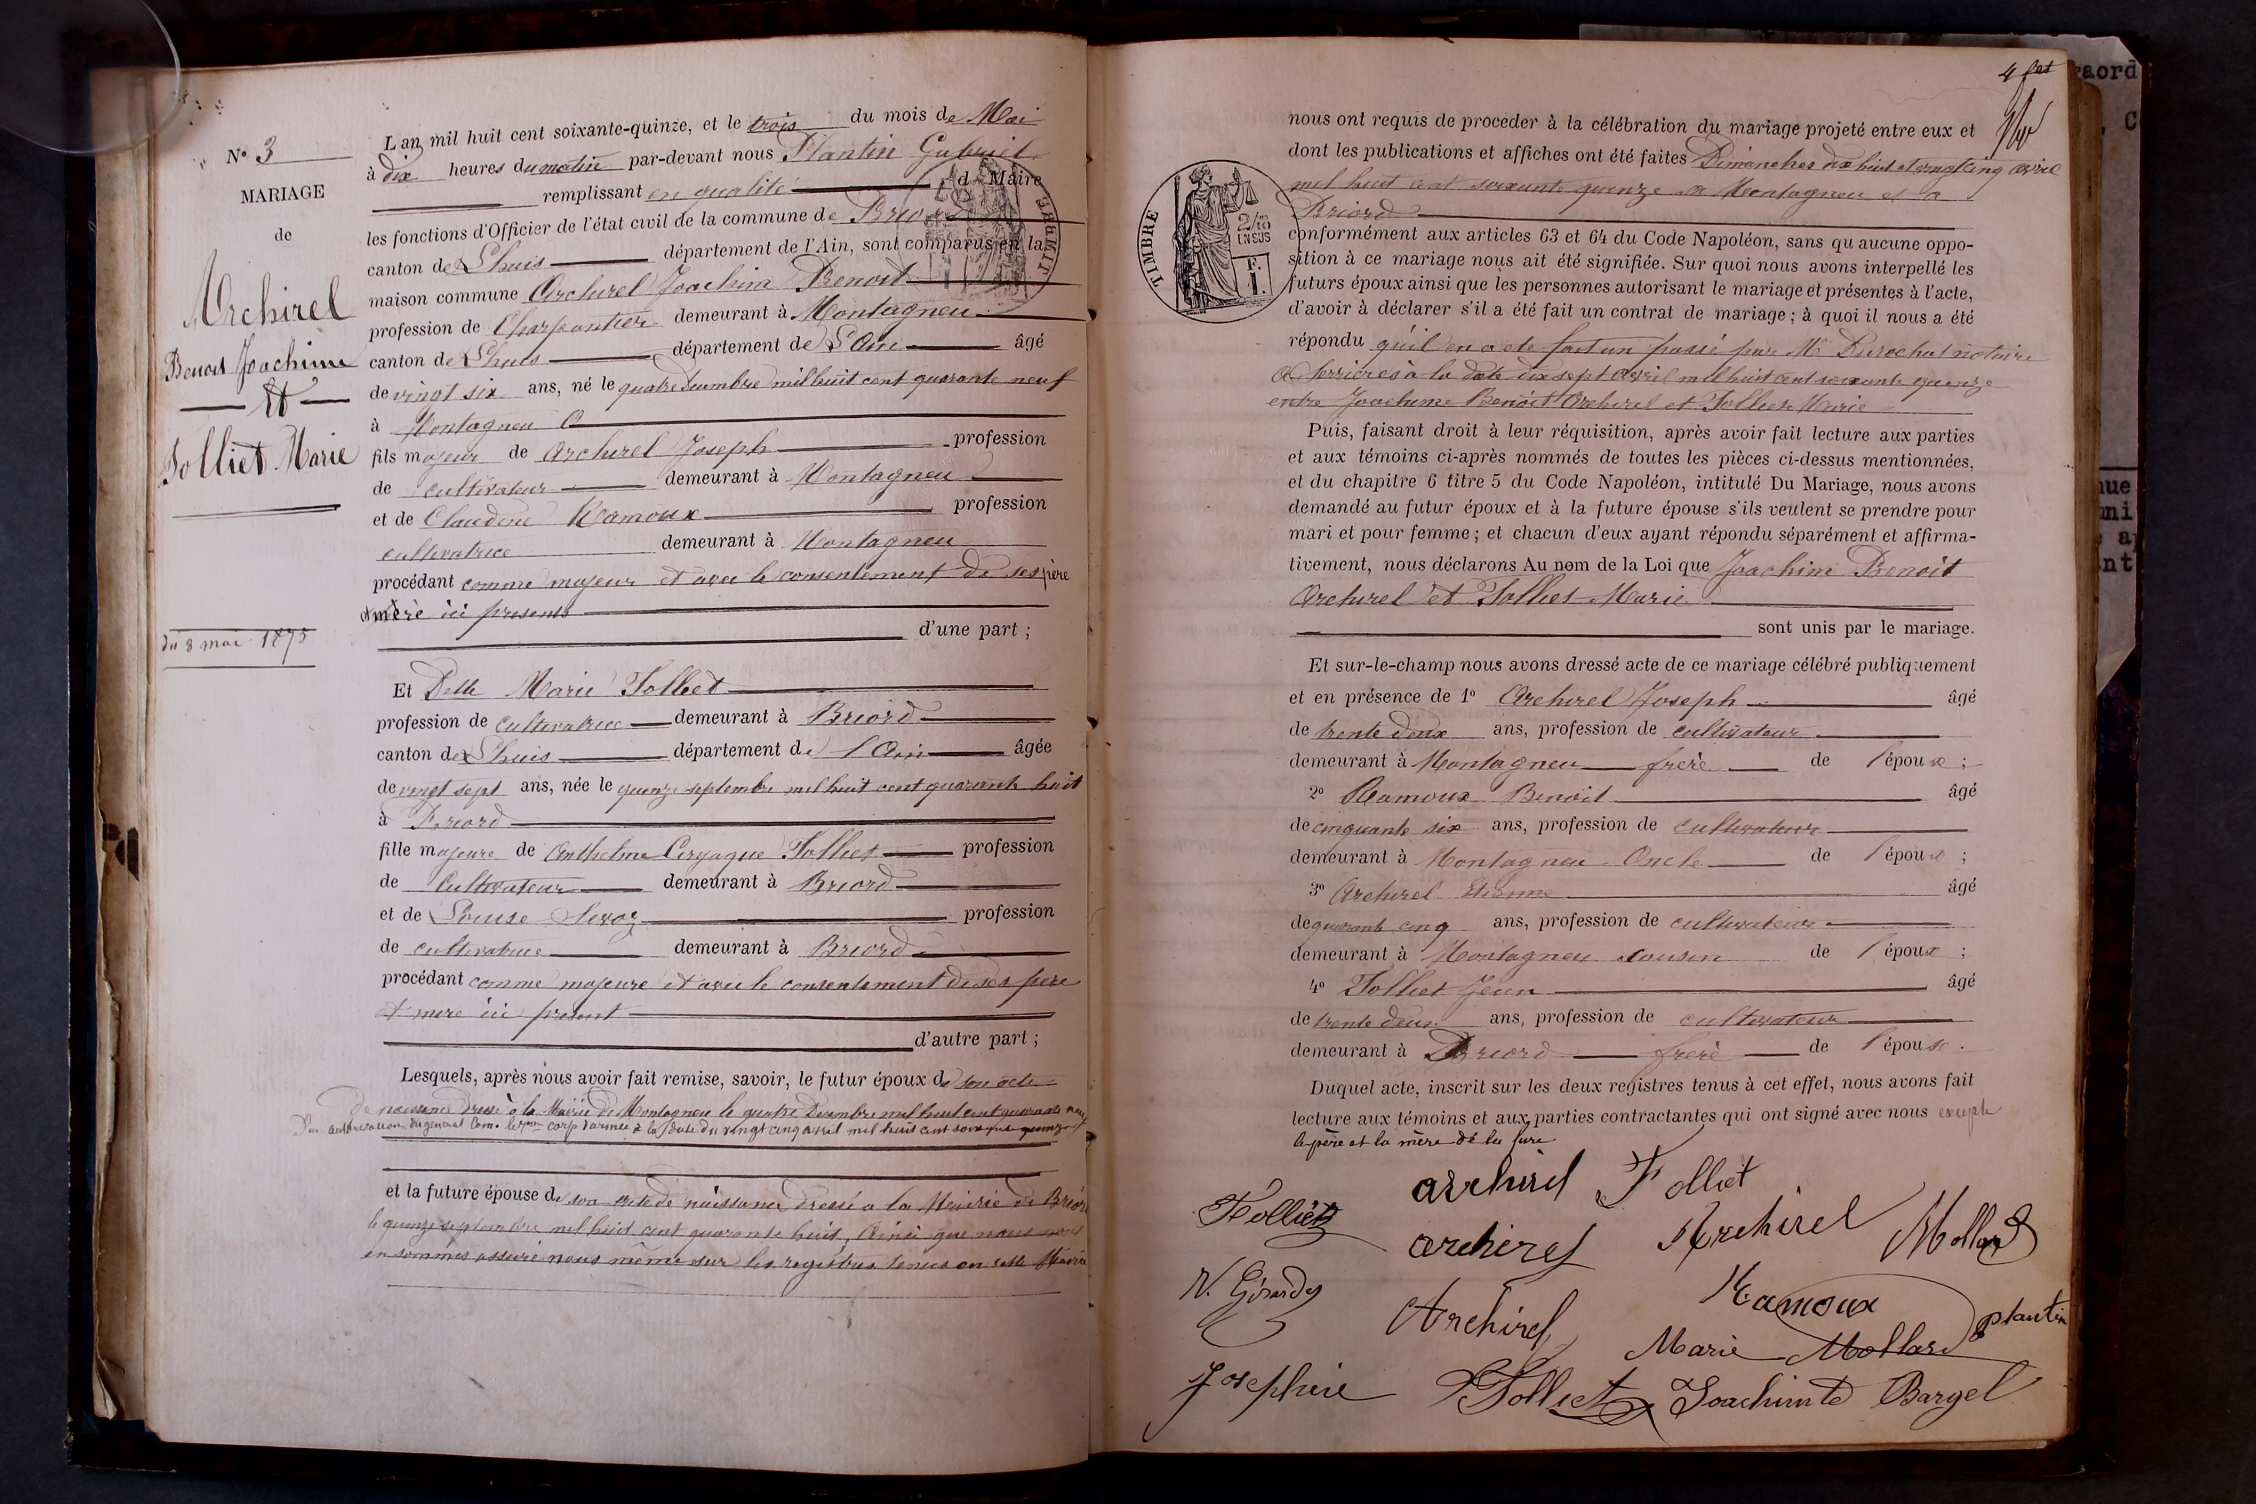 N° 3
MARIAGE
de
Archirel
Benoit Joachim
Et
Tolliet Marie
du 3 mai 1875
L'an mil huit cent soixante-quinze, et le trois du mois de Mai
à dix heures du matin par-devant nous Plantin Gabriel
remplissant en qualité de Maire
les fonctions d'Officier de l'état civil de la commune de Briord
canton de Lhuis département de l'Ain, sont comparus en la
maison commune Archirel Joachim Benoit
profession de Charpentier demeurant à Montagneu
canton de Lhuis département de L'Ain âgé
de vingt six ans, né le quatre Décembre mil huit cent quarante neuf
à Montagneu
fils majeur de Archirel Joseph profession
de cultivateur demeurant à Montagneu
et de Claudine Ramoux profession
cultivatrice demeurant à Montagneu
procédant comme majeur et avec le consentement de ses père
et mère ici presents
d'une part ;
Et Delle Marie Tolliet
profession de cultivatrice demeurant à Briord
canton de Lhuis département de l'Ain âgée
de vingt sept ans, née le quinze septembre mil huit cent quarante huit
à Briord
fille majeure de Anthelme Cyriaque Tolliet profession
de Cultivateur demeurant à Briord
et de Louise Servoz profession
de cultivatrice demeurant à Briord
procédant comme majeure et avec le consentement de ses père
et mère ici présent
d'autre part ;
Lesquels, après nous avoir fait remise, savoir, le futur époux de son acte
de naissance dressé à la Mairie de Montagneu le quatre Décembre mil huit cent quarante neuf
D'un autorisation du général Com. le corp d'armée à la date du vingt cinq avril mil huit cent soixante quinze
et la future épouse de son acte de naissance dressé à la Mairie de Briord
le quinze septembre mil huit cent quarante huit, Ainsi que nous nous
en sommes assuré nous même sur les registres tenus en cette Mairie
4 fet
nous ont requis de proceder à la célébration du mariage projeté entre eux et
dont les publications et affiches ont été faites Dimanches dix huit et vingt cinq avril
mil huit cent soixante quinze à Montagneu et à
Briord
TIMBRE
2/10
EN SUS
conformément aux articles 63 et 64 du Code Napoléon, sans qu'aucune oppo-
sition à ce mariage nous ait été signifiée. Sur quoi nous avons interpellé les
futurs époux ainsi que les personnes autorisant le mariage et présentes à l'acte,
d'avoir à déclarer s'il a été fait un contrat de mariage ; à quoi il nous a été
répondu qu'il en a été fait un passé par Me Durochat notaire
a Serrières à la date dix sept Avril mil huit cent soixante quinze
entre Joachime Benoit Archirel et Tolliet Marie
Puis, faisant droit à leur réquisition, après avoir fait lecture aux parties
et aux témoins ci-après nommés de toutes les pièces ci-dessus mentionnées,
et du chapitre 6 titre 5 du Code Napoléon, intitulé Du Mariage, nous avons
demandé au futur époux et à la future épouse s'ils veulent se prendre pour
mari et pour femme ; et chacun d'eux ayant répondu séparément et affirma-
tivement, nous déclarons Au nom de la Loi que Joachim Benoit
Archirel et Tolliet Marie
sont unis par le mariage.
Et sur-le-champ nous avons dressé acte de ce mariage célébré publiquement
et en présence de 1° Archirel Joseph âgé
de trente deux ans, profession de cultivateur
demeurant à Montagneu frère de l'époux ;
2° Ramoux Benoit âgé
de cinquante six ans, profession de cultivateur
demeurant à Montagneu Oncle de l'époux ;
3° Archirel Etienne âgé
de quarante cinq ans, profession de cultivateur
demeurant à Montagneu cousin de l'époux ;
4° Tolliet Jean âgé
de trente deux ans, profession de cultivateur
demeurant à Briord frère de l'épouse.
Duquel acte, inscrit sur les deux registres tenus à cet effet, nous avons fait
lecture aux témoins et aux parties contractantes qui ont signé avec nous excepté
le père et la mère de la fure
archirel Tolliet
Tolliet archirel Archirel Mollard
N. Girardy Archirel Ramoux plantin
Marie Mollard
Josephine Tolliet Joachimte Bargel